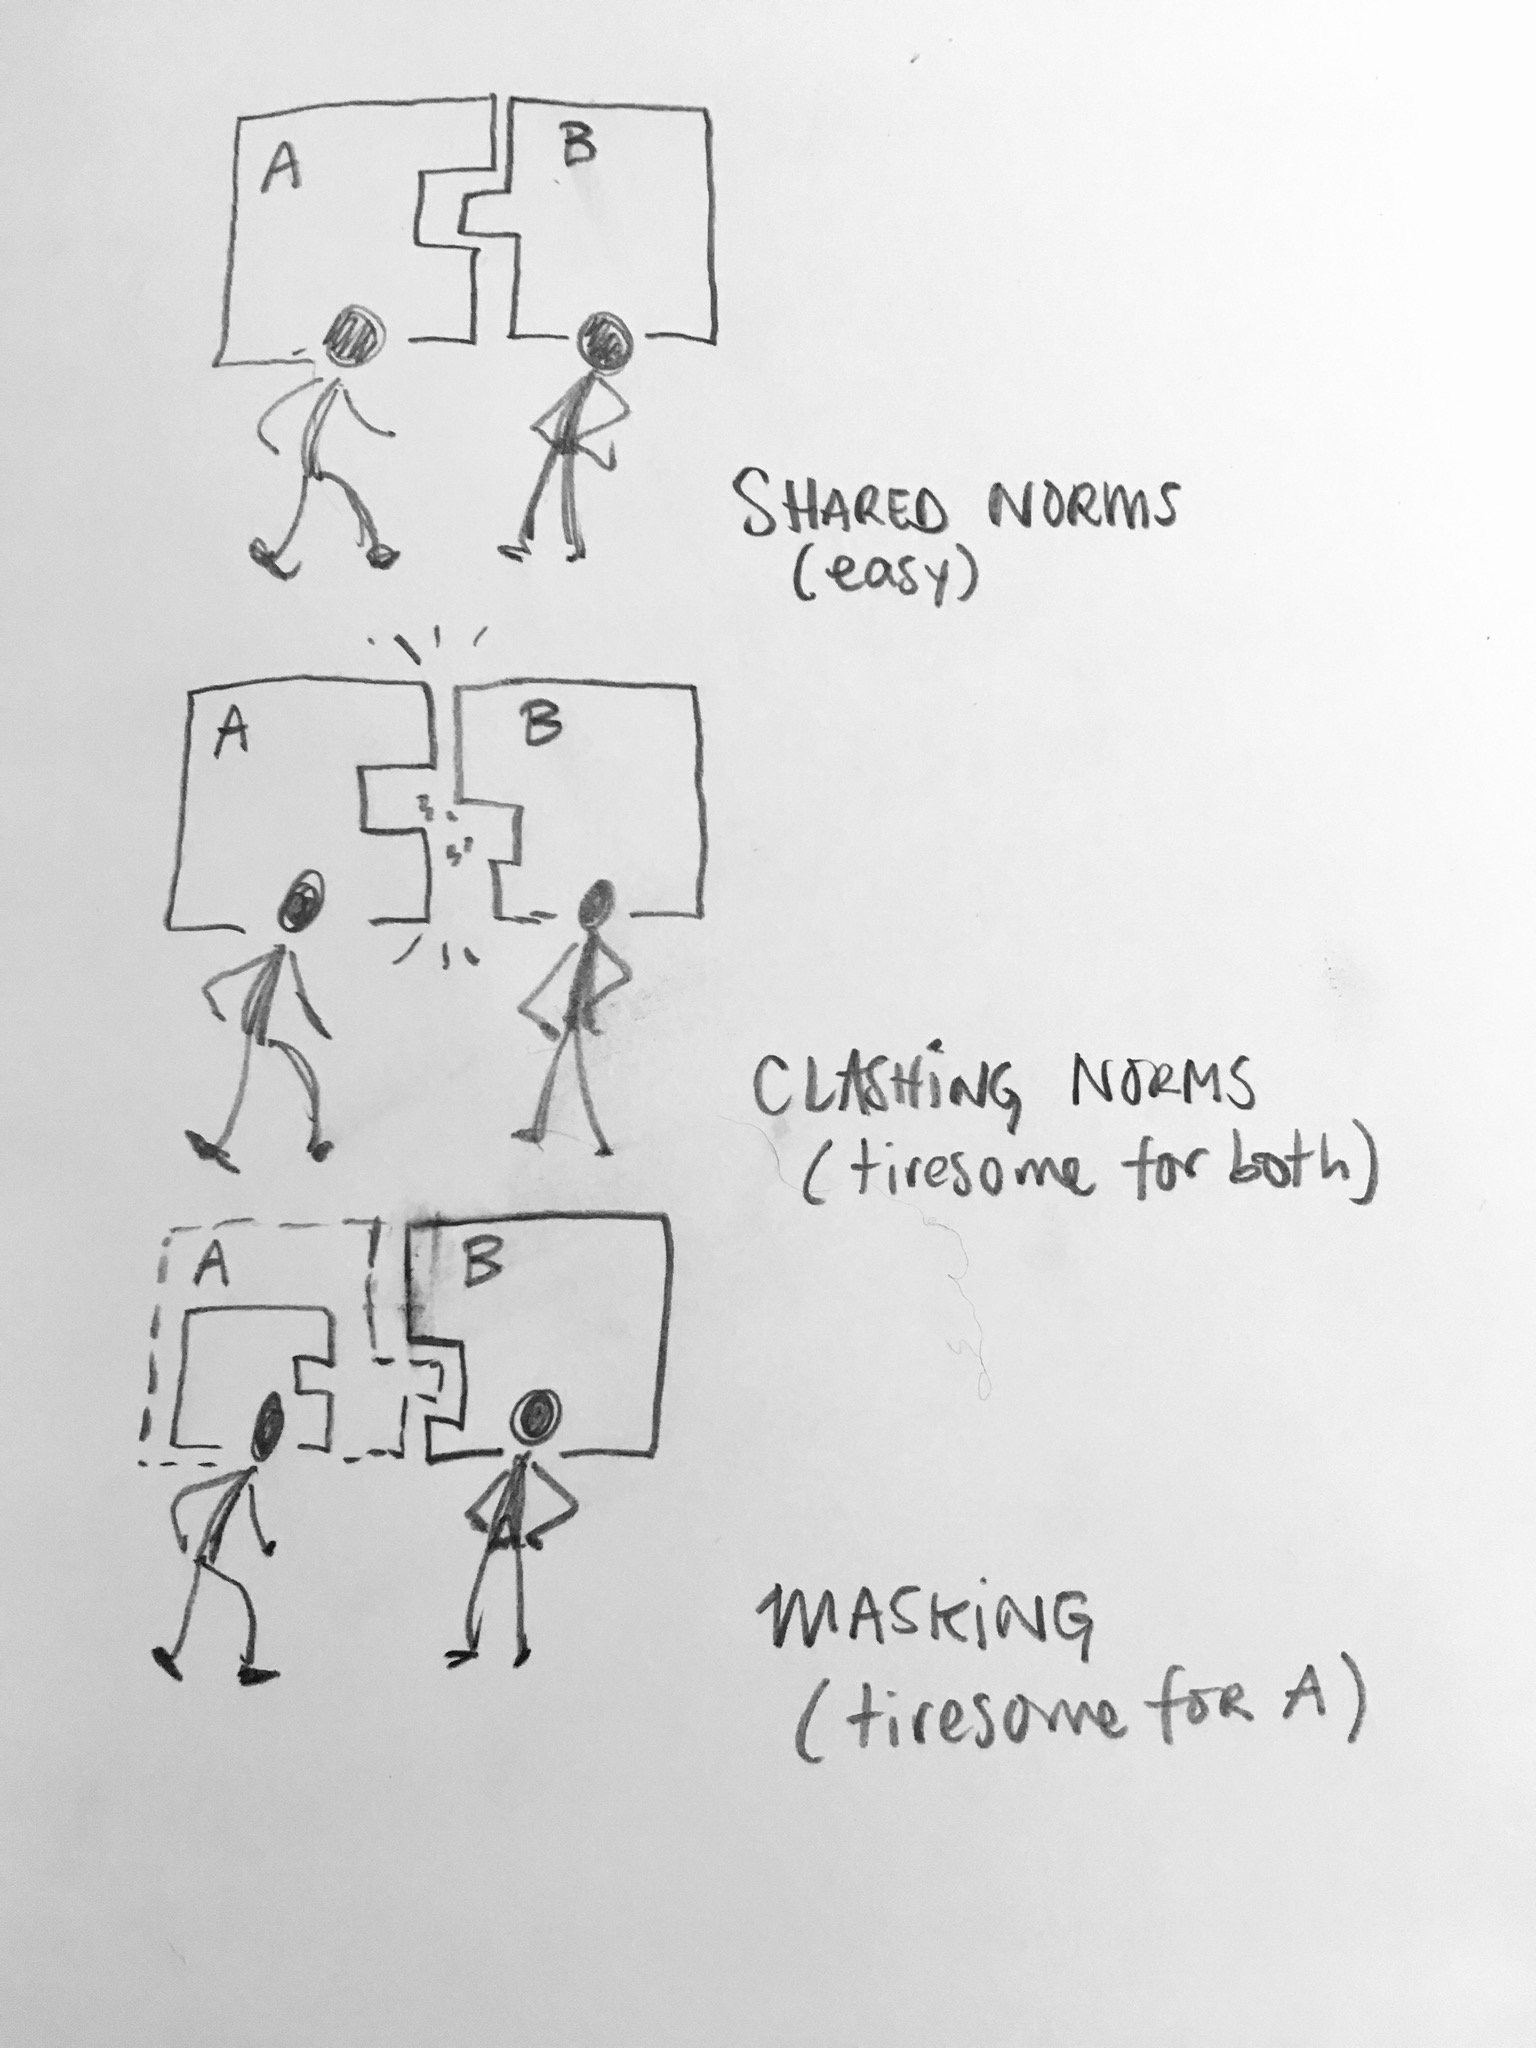 A
B
SHARED NORMS
(easy)
A
B
CLASHiNG NORMS
(tiresome for both)
A
B
MASKiNG
(tiresome foR A)